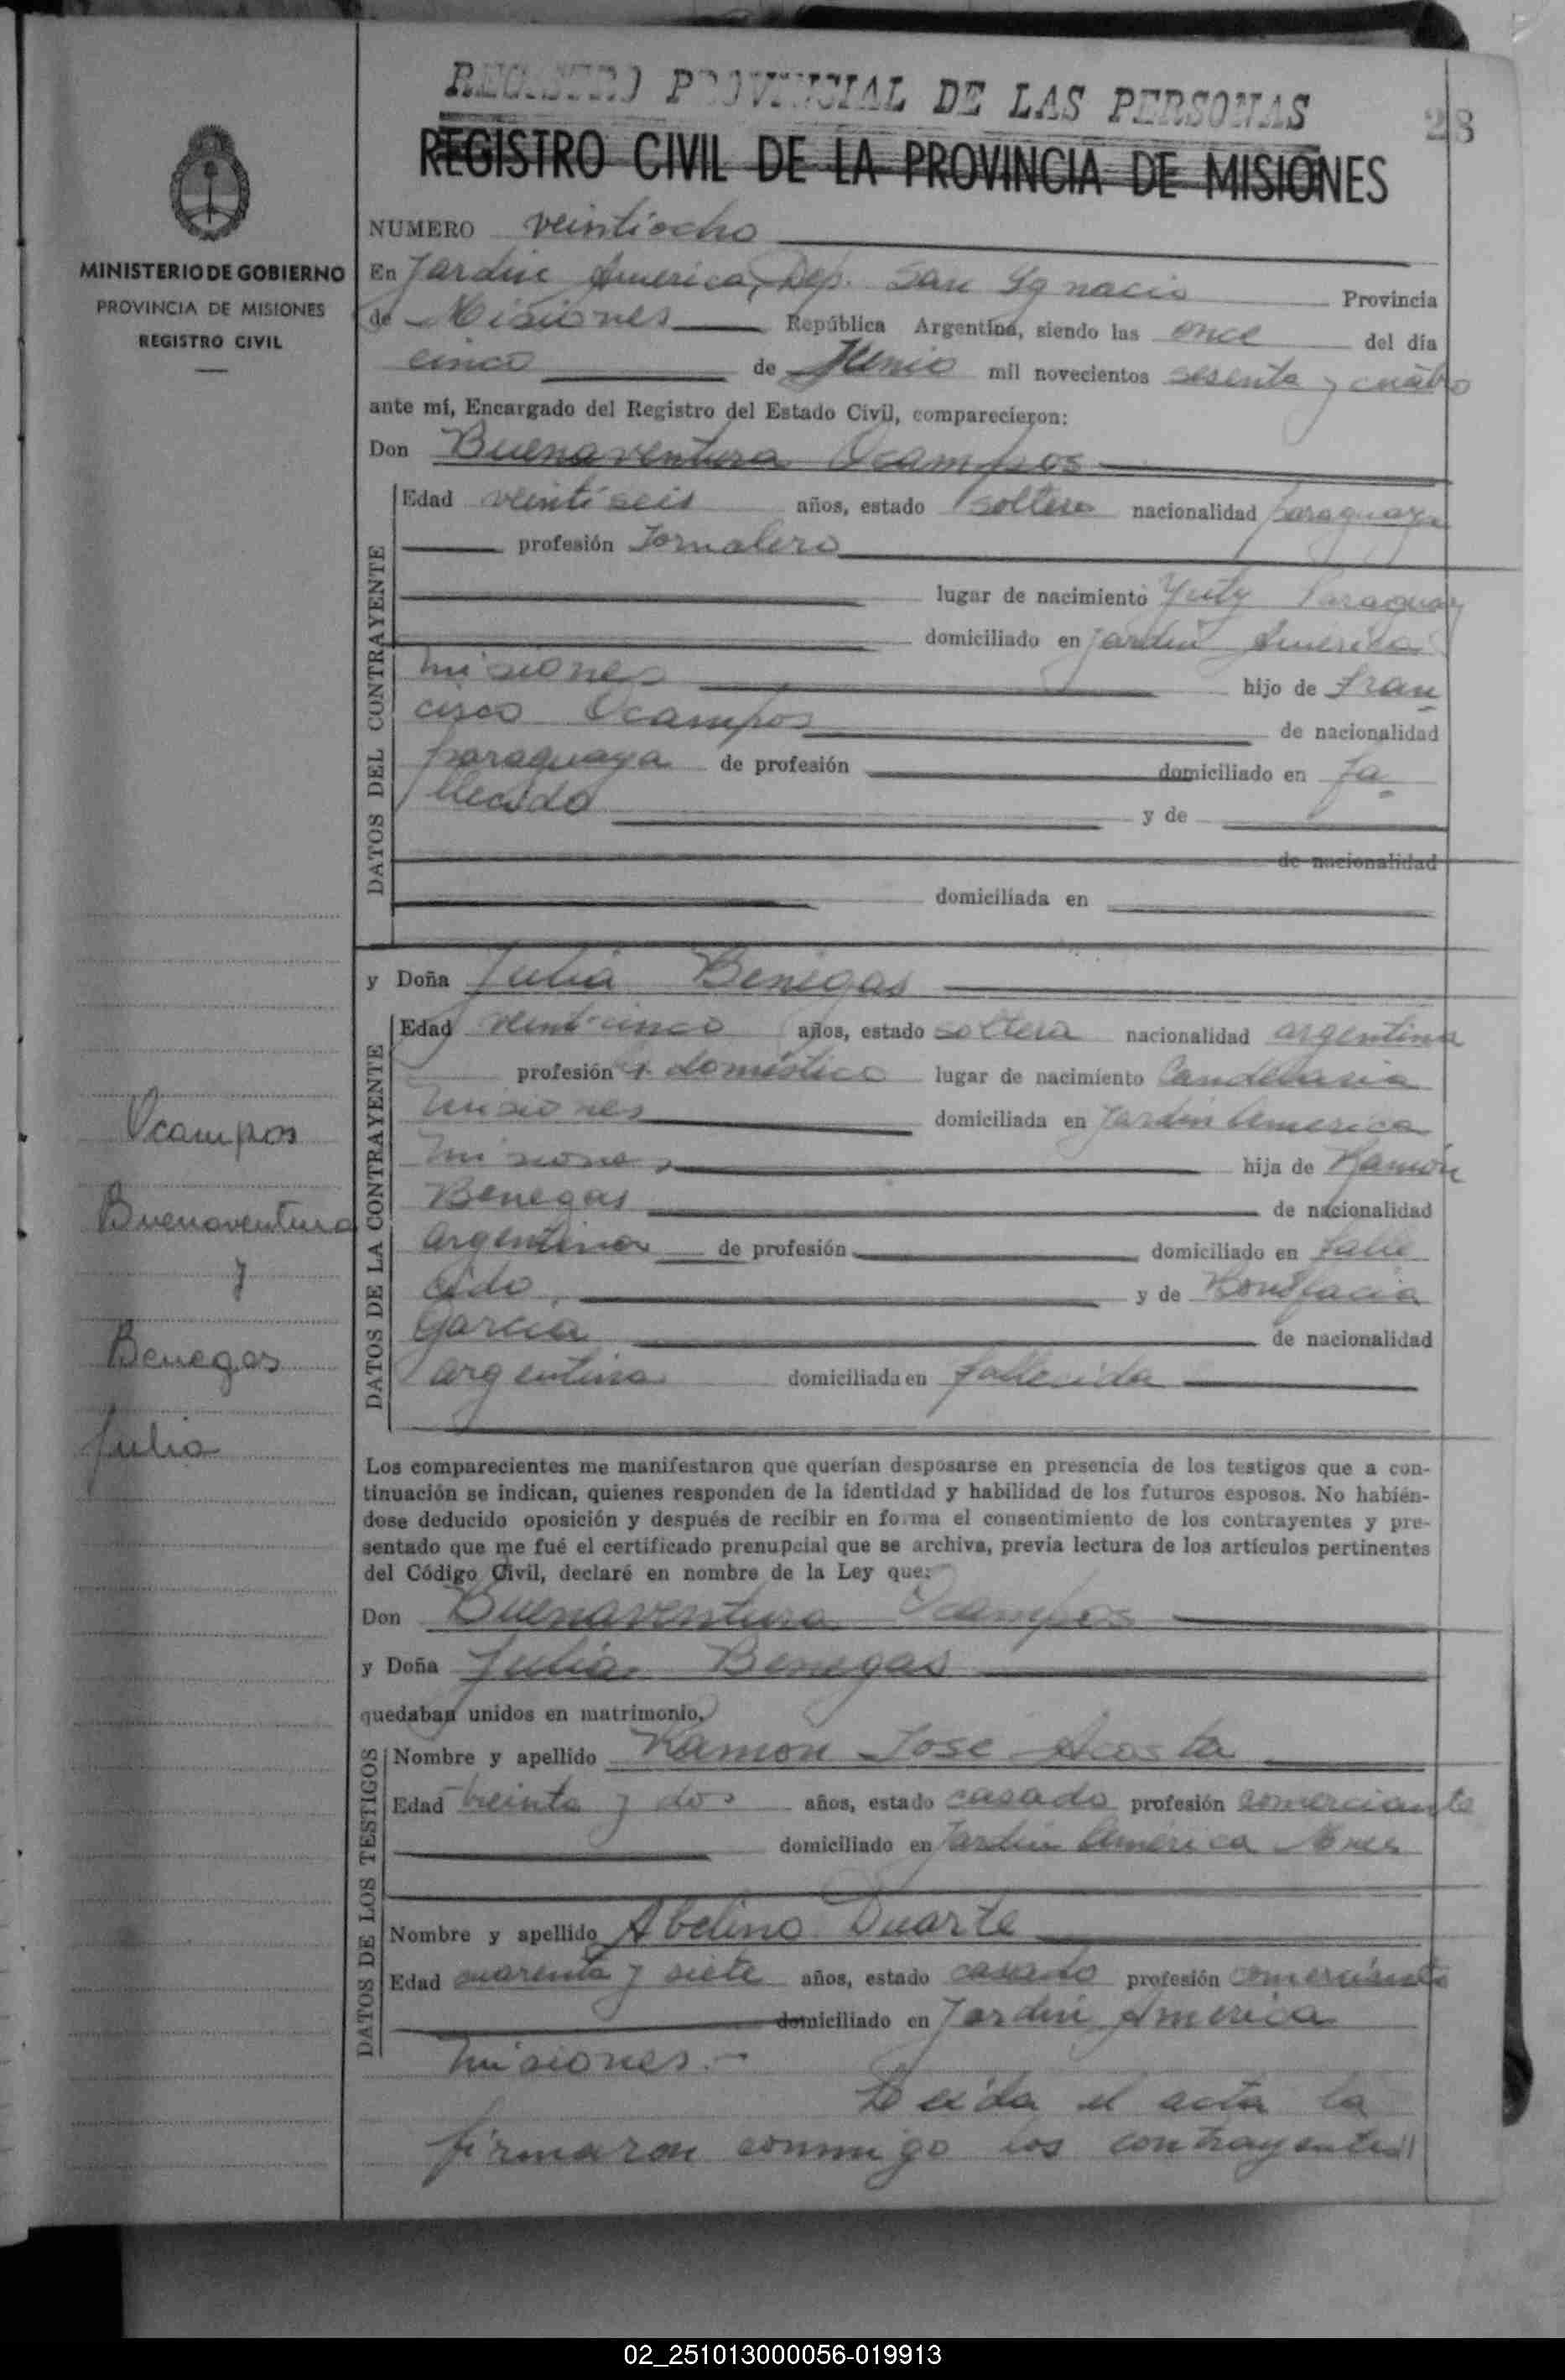 REGISTRO PROVINCIAL DE LAS PERSONAS
28
REGISTRO CIVIL DE LA PROVINCIA DE MISIONES
MINISTERIO DE GOBIERNO
PROVINCIA DE MISIONES
REGISTRO CIVIL
NUMERO veintiocho
En Jardin America, Dep. San Ignacio Provincia
de Misiones República Argentina, siendo las once del día
cinco de Junio mil novecientos sesenta y cuatro
ante mí, Encargado del Registro del Estado Civil, comparecieron:
Don Buenaventura Ocampos
DATOS DEL CONTRAYENTE
Edad veintiseis años, estado soltero nacionalidad paraguaya
profesión Jornalero
lugar de nacimiento Yuty Paraguay
domiciliado en Jardin America
misiones hijo de Fran
cisco Ocampos de nacionalidad
paraguaya de profesión domiciliado en fa
llecido y de
de nacionalidad
domiciliada en
y Doña Julia Benegas
DATOS DE LA CONTRAYENTE
Edad veinticinco años, estado soltera nacionalidad argentina
profesión q. domestico lugar de nacimiento Candelaria
misiones domiciliada en Jardin America
misiones hija de Ramón
Benegas de nacionalidad
argentina de profesión domiciliado en falle
cido y de Bonifacia
Garcia de nacionalidad
argentina domiciliada en fallecida
Ocampos
Buenaventura
y
Benegas
Julia
Los comparecientes me manifestaron que querían desposarse en presencia de los testigos que a con-
tinuación se indican, quienes responden de la identidad y habilidad de los futuros esposos. No habién-
dose deducido oposición y después de recibir en forma el consentimiento de los contrayentes y pre-
sentado que me fué el certificado prenupcial que se archiva, previa lectura de los artículos pertinentes
del Código Civil, declaré en nombre de la Ley que:
Don Buenaventura Ocampos
y Doña Julia Benegas
quedaban unidos en matrimonio,
DATOS DE LOS TESTIGOS
Nombre y apellido Ramon Jose Acosta
Edad treinta y dos años, estado casado profesión comerciante
domiciliado en Jardin America Mnes
Nombre y apellido Abelino Duarte
Edad cuarenta y siete años, estado casado profesión comerciante
domiciliado en Jardin America
misiones.-
Leida el acta la
firmaron conmigo los contrayentes
02_251013000056-019913